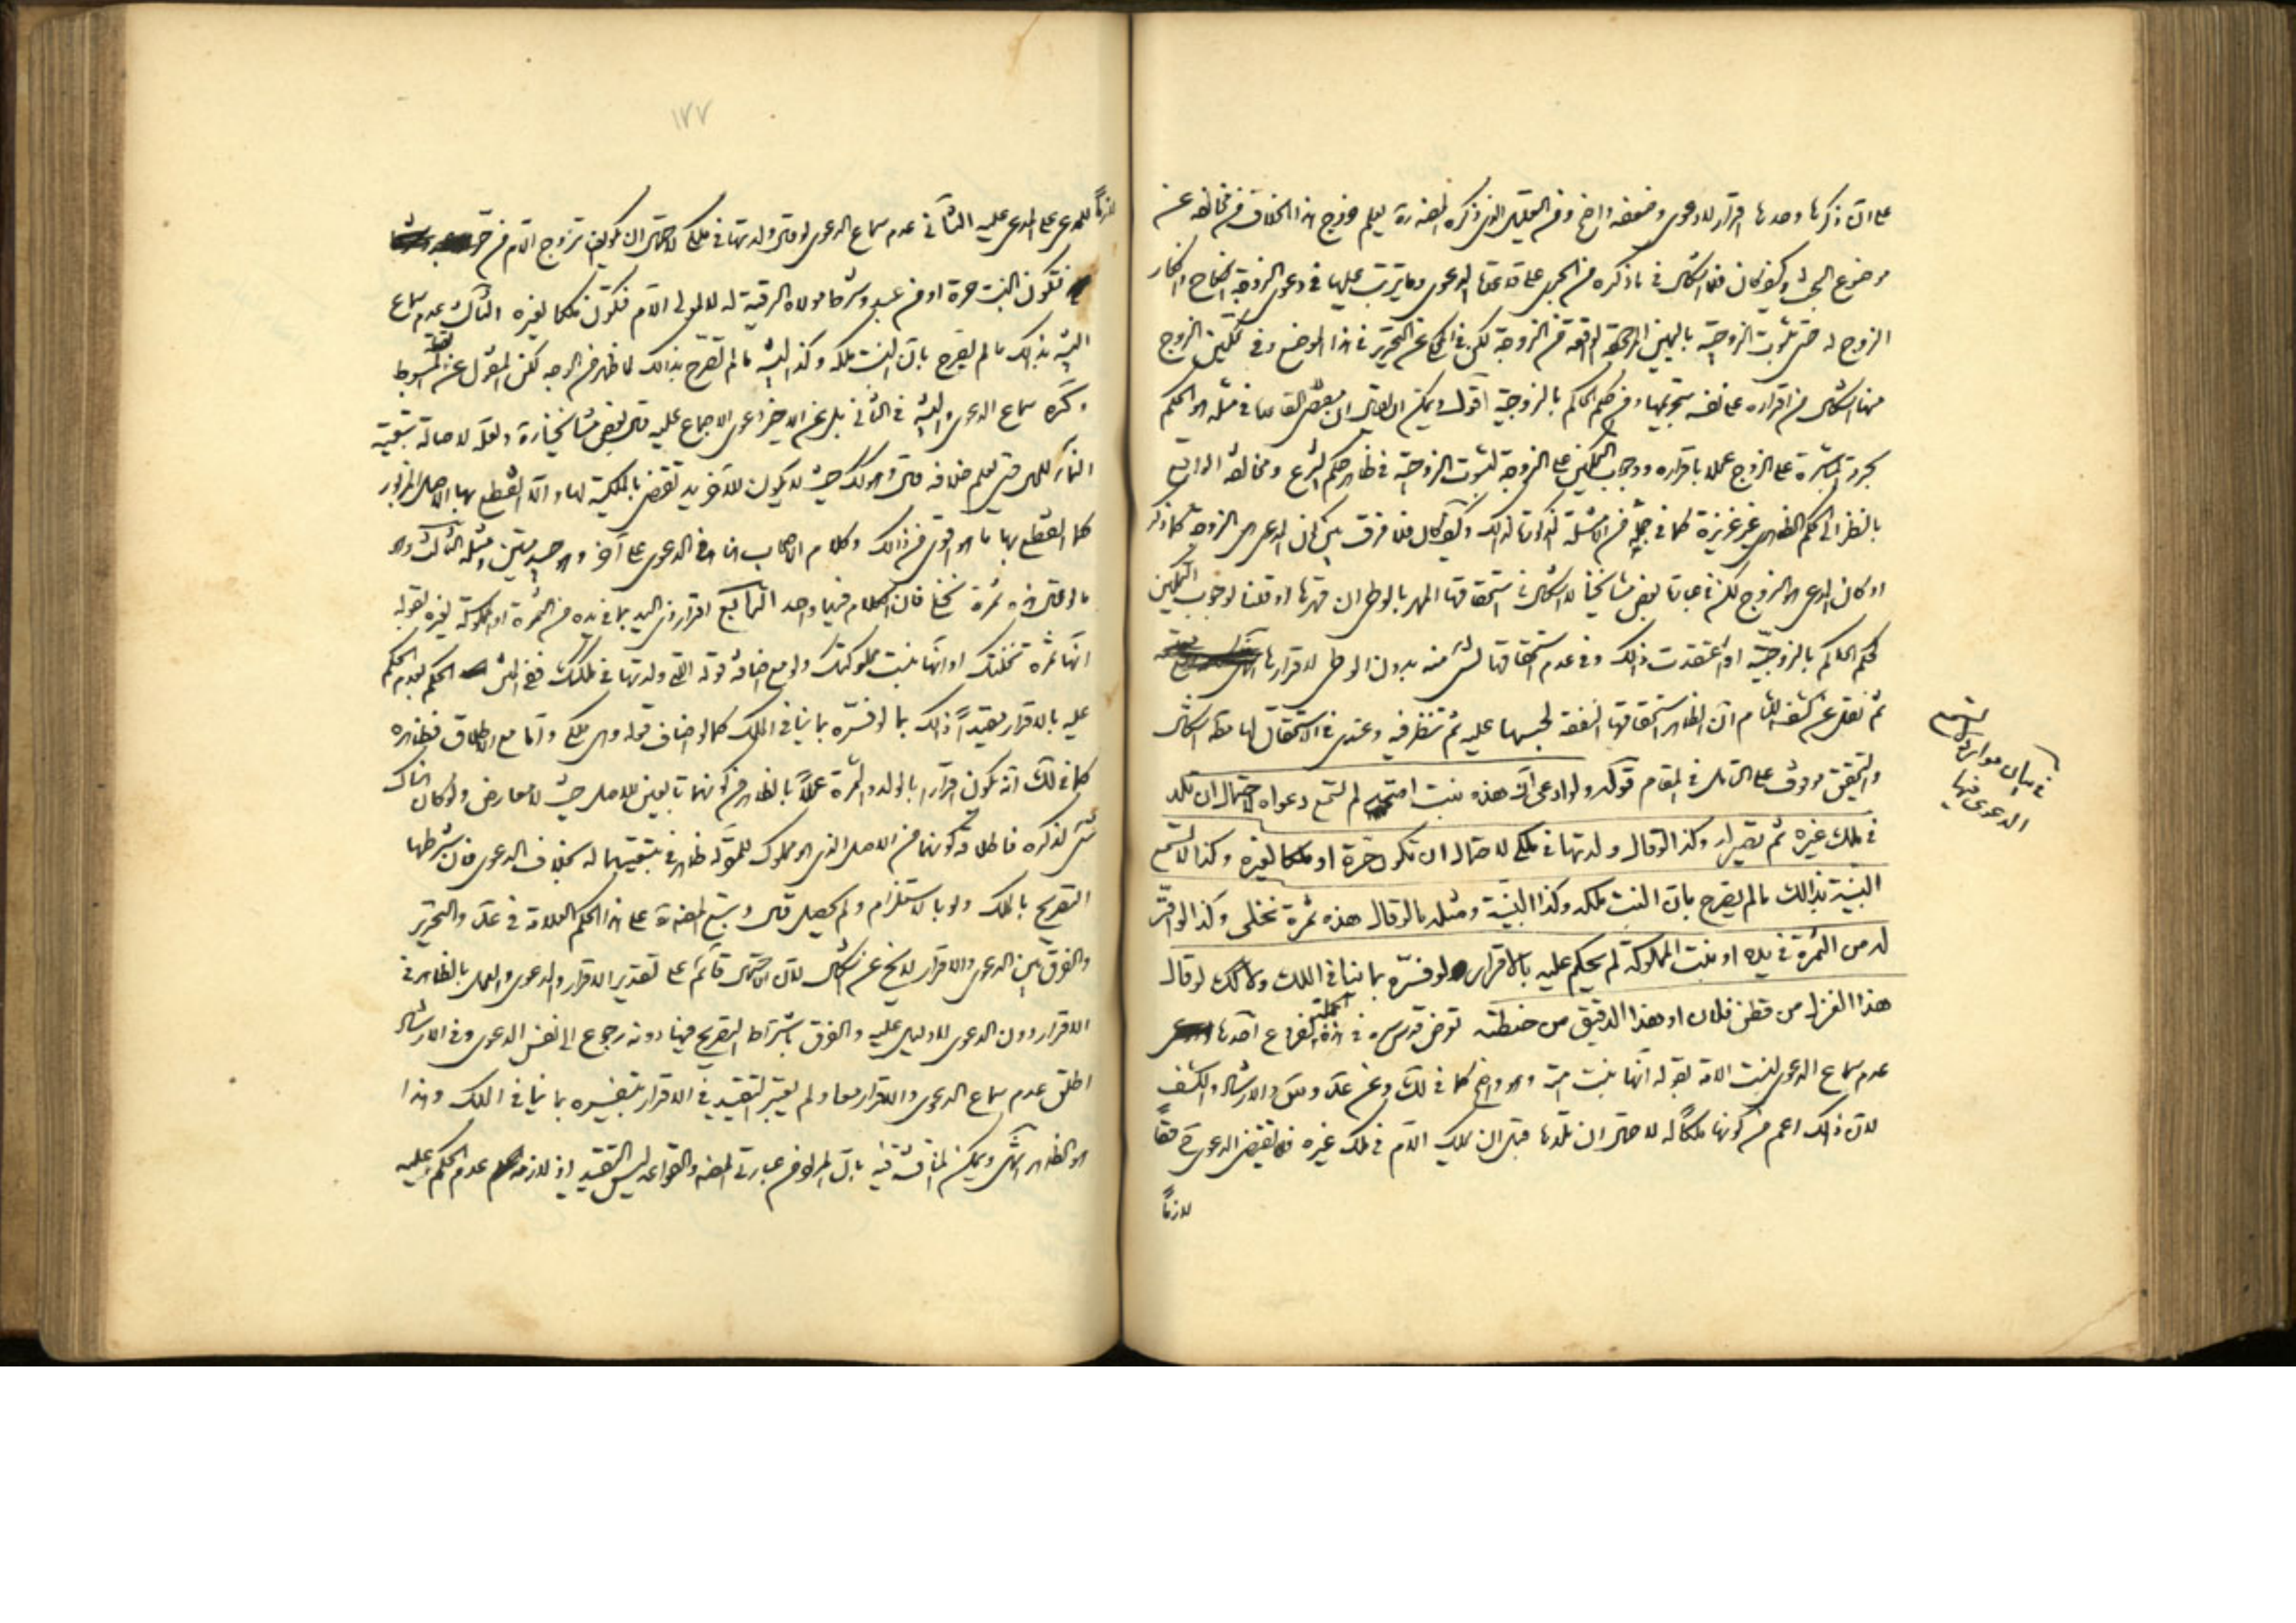 على ان ذكرها وحدها اقرار لا دعوى وضعفه واضح وفي التعليل الذي ذكره المصنف ره ليعلم خروج هذا الخلاف
موضوع البحث وكيف كان فلا اشكال في ما ذكره من الجري على قاعدة الدعوى وما يترتب عليها في دعوى الزوجة النكاح وانكار
الزوج له حتى ثبوت الزوجية باليمين المردودة الواقعة من الزوجة لكن في التحرير في هذا الموضع وفي تمكين الزوج
منها اشكال من اقراره على نفسه بتحريمها ومن حكم الحاكم بالزوجية اقول ويمكن ان يقال ان مقتضى القاعدة في مثله هو الحكم
بحرمة المباشرة على الزوج عملا باقراره ووجوب التمكين على الزوجة لثبوت الزوجية في ظاهر حكم الشرع ومخالفة الواقع
بالنظر الى الحكم الظاهري غير عزيزة كما في جملة من الامثلة وكيف كان فلا فرق بين كون المدعي هي الزوجة كما ذكر
او كان المدعي هو الزوج لكن في عبارة بعض مشايخنا لا اشكال في استحقاقها المهر بالوطي ان قهرها او قلنا بوجوب التمكين
لحكم الحاكم بالزوجية او اعتقدت ذلك وفي عدم استحقاقها لشيء منه بدون الوطي لاقرارها
ثم نقل عن كشف اللثام ان الظاهر استحقاقها النفقة لحبسها عليه ثم تنظر فيه وعندي في الاستحقاق لها
والتحقيق موقوف على التأمل في المقام قوله ولو ادعى ان هذه بنت امته لم تسمع دعواه لاحتمال ان تلد
في ملك غيره ثم تصير له وكذا لو قال ولدتها في ملكي لاحتمال ان تكون حرة او ملكا لغيره وكذا لا تسمع
البينة بذالك ما لم يصرح بان البنت ملكه وكذا البينة ومثله ما لو قال هذه ثمرة نخلي وكذا لو اقر
له من الثمرة في يده او بنت المملوكة لم يحكم عليه بالاقرار لو فسره بما ينافي الملك ولا كك لو قال
هذا الغزل من قطن فلان او هذا الدقيق من حنطته تعرض قدس سره في هذه الجملة لفروع احدها
عدم سماع الدعوى لبنت الامة بقوله انها بنت امته وهو واضح كما في لك وعن عد و والارشاد والكشف
لان ذلك اعم من كونها ملكا له لاحتمال ان تلدها قبل ان يملك الام في ملك غيره فلا تقتضي الدعوى حقا
لازما
في بيان موارد لا تسمع
الدعوى فيها
١٧٧
لازما للمدعي على المدعى عليه الثاني عدم سماع الدعوى لو قال ولدتها في ملكي لاحتمال ان يكون تزوج الام من حر
فتكون البنت حرة او من عبد وشرط مولاه الرقية له لا لمولى الام فتكون ملكا لغيره الثالث عدم سماع
البينة بذلك ما لم يصرح بان البنت ملكه وكذا البينة ما لم تصرح بذالك لما ظهر من الوجه لكن المنقول عن المبسوط
وغيره سماع الدعوى والبينة في الثاني بل عن الاخير دعوى الاجماع عليه قال بعض مشايخنا ره ولعله لاصالة تبعية
النماء للمال حتى يعلم خلافه قال وهو كذلك حيث لا يكون للآخر يد تقتضي بالملكية لها والا انقطع بها الاصل المزبور
كما انقطع بها ما هو اقوى من ذالك وكلام الاصحاب هنا في الدعوى على آخر وهو جيد متين ومثله الثالث وهو
ما لو قال هذه ثمرة نخلي فان الكلام فيهما واحد الرابع اقرار ذي اليد بما في يده من الثمرة او المملوكة لغيره بقوله
انها ثمرة نخلتك او انها بنت مملوكتك ولو مع اضافة قوله التي ولدتها في ملكك الحكم لعدم الحكم
عليه بالاقرار مقيدا ذلك بما لو فسره بما ينافي الملك كما لو اضاف قوله وهي ملكي واما مع الاطلاق فظاهره
كما في لك انه يكون اقرارا بالولد والثمرة عملا بالظاهر من كونهما تابعين للاصل حيث لا معارض ولو كان هناك
شيء لذكره فاطلاقه كونهما من الاصل الذي هو مملوك للمقر له ظاهر في تبعيتهما له بخلاف الدعوى فان شرطها
التصريح بالملك ولو بالاستلزام ولم يحصل قال وتبع المصنف ره على هذا الحكم العلامة في عد والتحرير
والفرق بين الدعوى والاقرار لا يخ عن اشكال لان الاحتمال قائم على تقدير الاقرار والدعوى والعمل بالظاهر في
الاقرار دون الدعوى لا دليل عليه والفرق باشتراط التصريح فيها دونه رجوع الى نفس الدعوى وفي الارشاد
اطلق عدم سماع الدعوى والاقرار معا ولم يعتبر التقييد في الاقرار بتفسيره بما ينافي الملك وهذا
هو الظاهر انتهى ويمكن المناقشة فيه بان المراد من عبارتي المصنف والقواعد ليس التقييد اذ لازمه عدم الحكم عليه